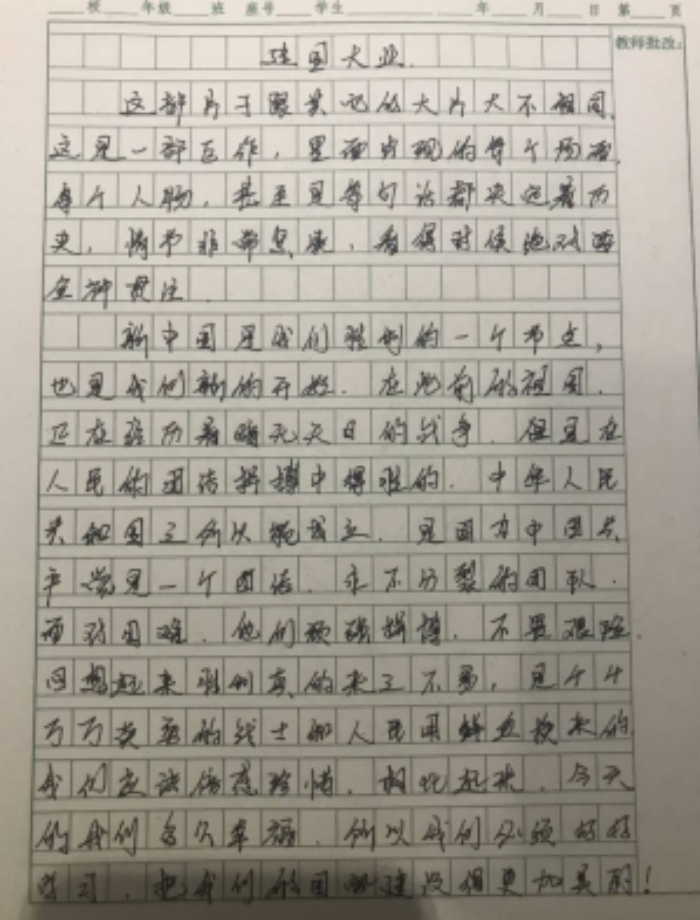 校 年级 班 座号 学生 年 月 日 第 页
教师批改:
建国大业.
这部片子跟其它的大片大不相同,
这是一部巨作,里面出现的每个场面,
每个人物,甚至是每句话都夹途着历
史,情节非常,看得时候绝对要
全神贯注.
新中国是我们胜利的一个节点,
也是我们新的开始.在此前的祖国.
正在经历着暗无天日的战争.但是在
人民的团结拼搏中得胜的.中华人民
共和国之所以能成立.是因为中国共
产党是一个团结.永不分裂的团队.
面对困难.他们顽强拼搏.不畏艰险.
回想起来胜利真的来之不易,是千千
万万英勇的战士和人民用鲜血换来的
我们应该倍感珍惜.相比起来.今天
的我们多么幸福.所以我们必须好好
学习.把我们的国家建设得更加美丽!